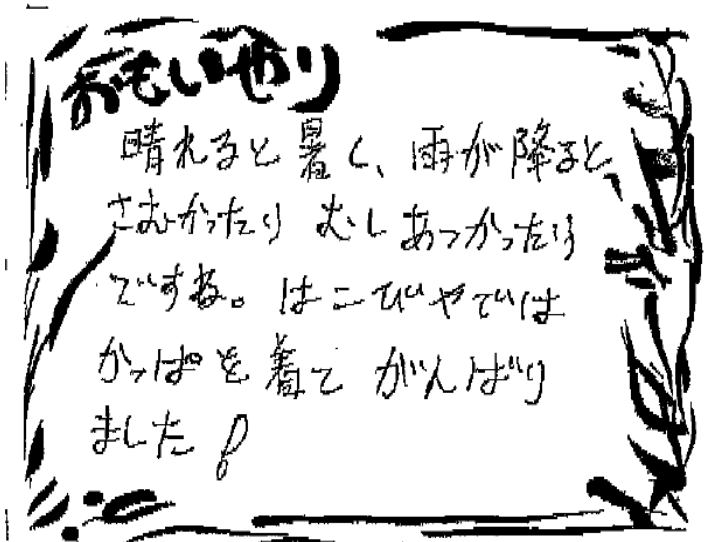 おもいやり
晴れると暑く、雨が降ると、
さむかったり むしあつかったり
ですね。はこびやでは
かっぱを着て がんばり
ました!